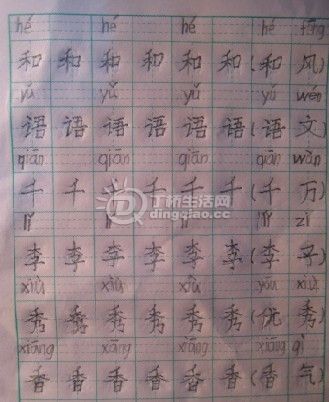 hé hé hé hé fēng
和 和 和 和 和 和 (和 风)
yǔ yǔ yǔ yǔ wén
语 语 语 语 语 语 (语 文)
qiān qiān qiān qiān wàn
千 千 千 千 千 千 (千 万)
lǐ lǐ lǐ lǐ zǐ
李 李 李 李 李 李 (李 子)
xiù xiù xiù yōu xiù
秀 秀 秀 秀 秀 秀 (优 秀)
xiāng xiāng xiāng xiāng qì
香 香 香 香 香 香 (香 气)
丁桥生活网
dingqiao.cc